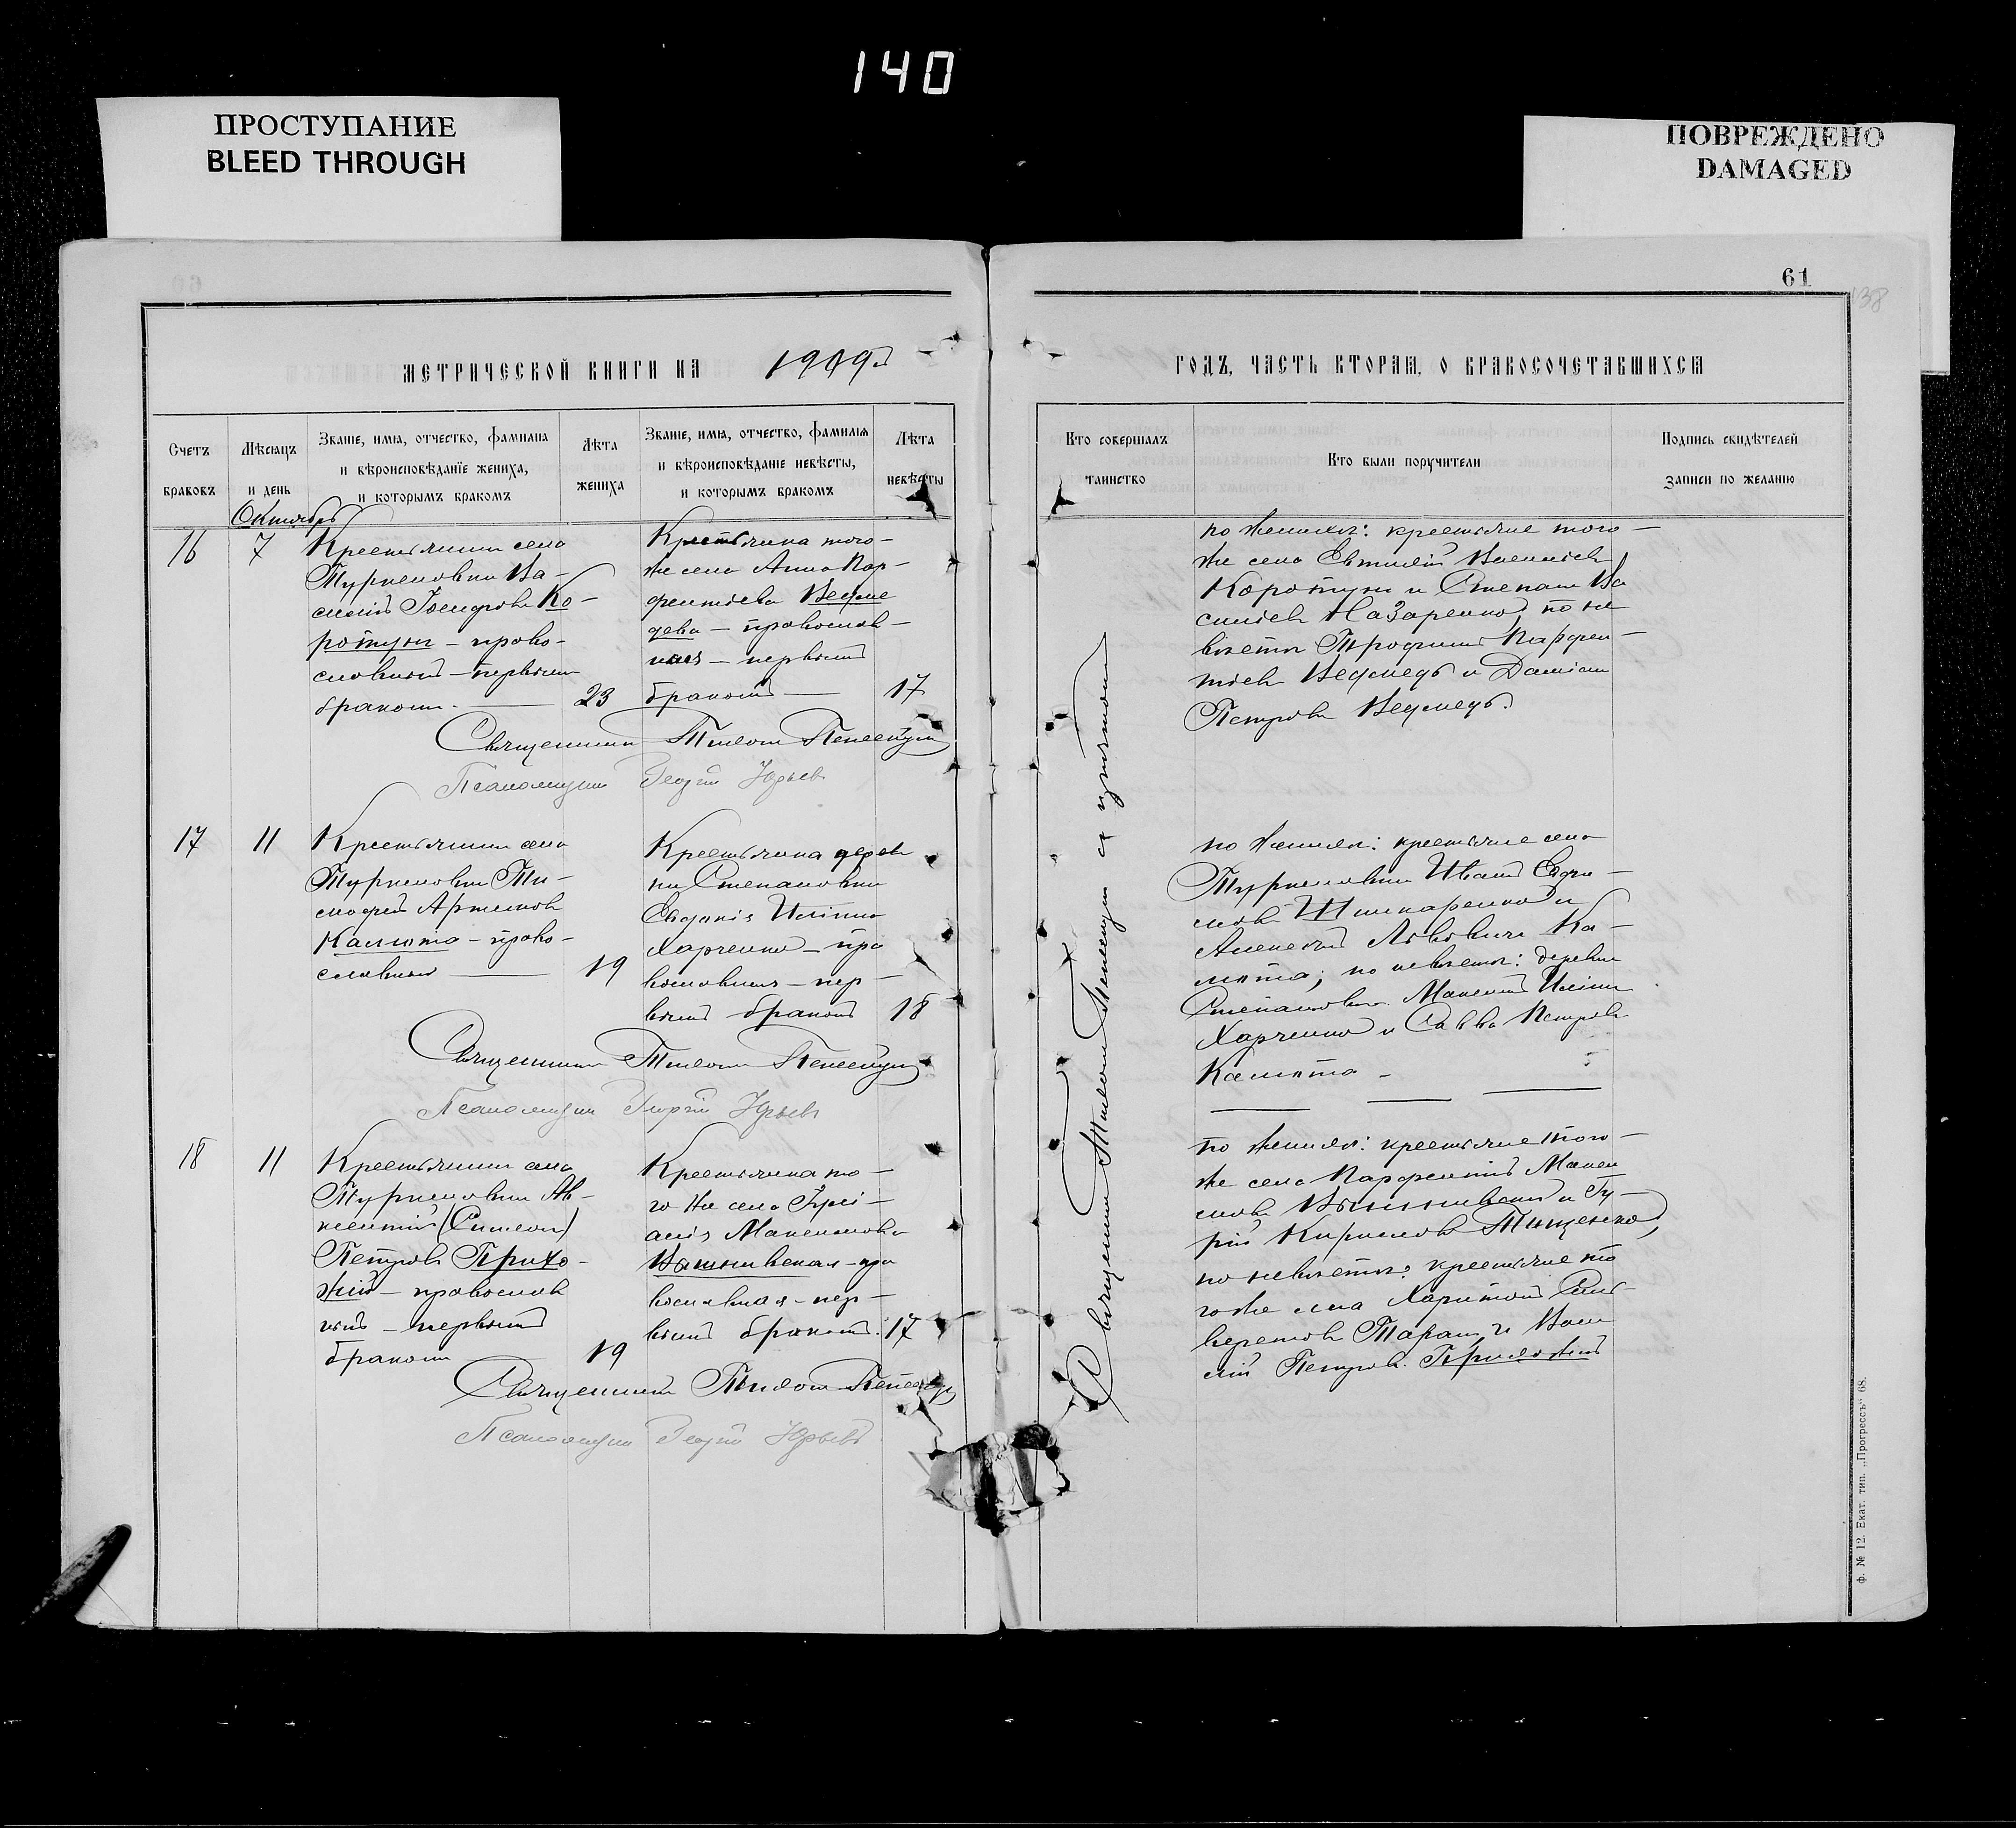 140
ПРОСТУПАНИЕ
BLEED THROUGH
ПОВРЕЖДЕНО
DAMAGED
61
138
МЕТРИЧЕСКОЙ КНИГИ НА 1909й
ГОДЪ, ЧАСТЬ ВТОРАЯ, О БРАКОСОЧЕТАВШИХСЯ
Счетъ
браковъ
Мѣсяцъ
и день
Званіе, имя, отчество, фамилія
и вѣроисповѣданіе жениха,
и которымъ бракомъ
Лѣта
жениха
Званіе, имя, отчество, фамилія
и вѣроисповѣданіе невѣсты,
и которымъ бракомъ
Лѣта
невѣсты
Кто совершалъ
таинство
Кто были поручители
Подпись свидѣтелей
записи по желанію
Октябрь
16
7
Крестьянинъ села
Туркеновки Ва-
силій Ко-
ротунъ – право-
славный – первымъ
бракомъ. 23
Крестьянка того-
же села Анна Пар-
фентіева Ведме
дева – православ-
ная – первымъ
бракомъ 17
по женихѣ: крестьяне того-
же села Евтихій Васильевъ
Коротунъ и Степанъ Ва
сильевъ Назаренко, по не
вѣстѣ Трофимъ Парфен-
тіевъ Ведмедь и Даміанъ
Петровъ Ведмедь.
Священникъ
Псаломщикъ Георгій Юрьевъ
17
11
Крестьянинъ села
Туркеновки Ти-
мофей Артемовъ
Калюта – право-
славный 19
Крестьянка дерев
ни Степановки
Евдокія Иліина
Харченко – пра
вославная – пер-
вымъ бракомъ 18
по женихѣ: крестьяне села
Туркеновки Иванъ Ефи-
мовъ Шинкаренко и
Алексѣй Львовичъ Ка-
люта; по невѣстѣ: деревни
Степановки Максимъ Иліинъ
Харченко и Савва Петровъ
Калюта –
Священникъ
Псаломщикъ Георгій Юрьевъ
18
11
Крестьянинъ села
Туркеновки Ав-
ксентій (Симеонъ)
Петровъ Прихо-
жій – православ
ный – первымъ
бракомъ 19
Крестьянка то-
го же села Іулі-
анія Максимова
Вышневская – пра
вославная – пер-
вымъ бракомъ. 17
по женихѣ: крестьяне того-
же села Парфентій Макси
мовъ Вышневскій и Гу-
рій Кириловъ Тищенко,
по невѣстѣ: крестьяне то
го же села Харитонъ
Таранъ и Васи
лій Петровъ Прихожій
Священникъ
Псаломщикъ Георгій Юрьевъ
Священникъ съ причтомъ
Ф. № 12. Екат. тип. „Прогрессъ“ 68.